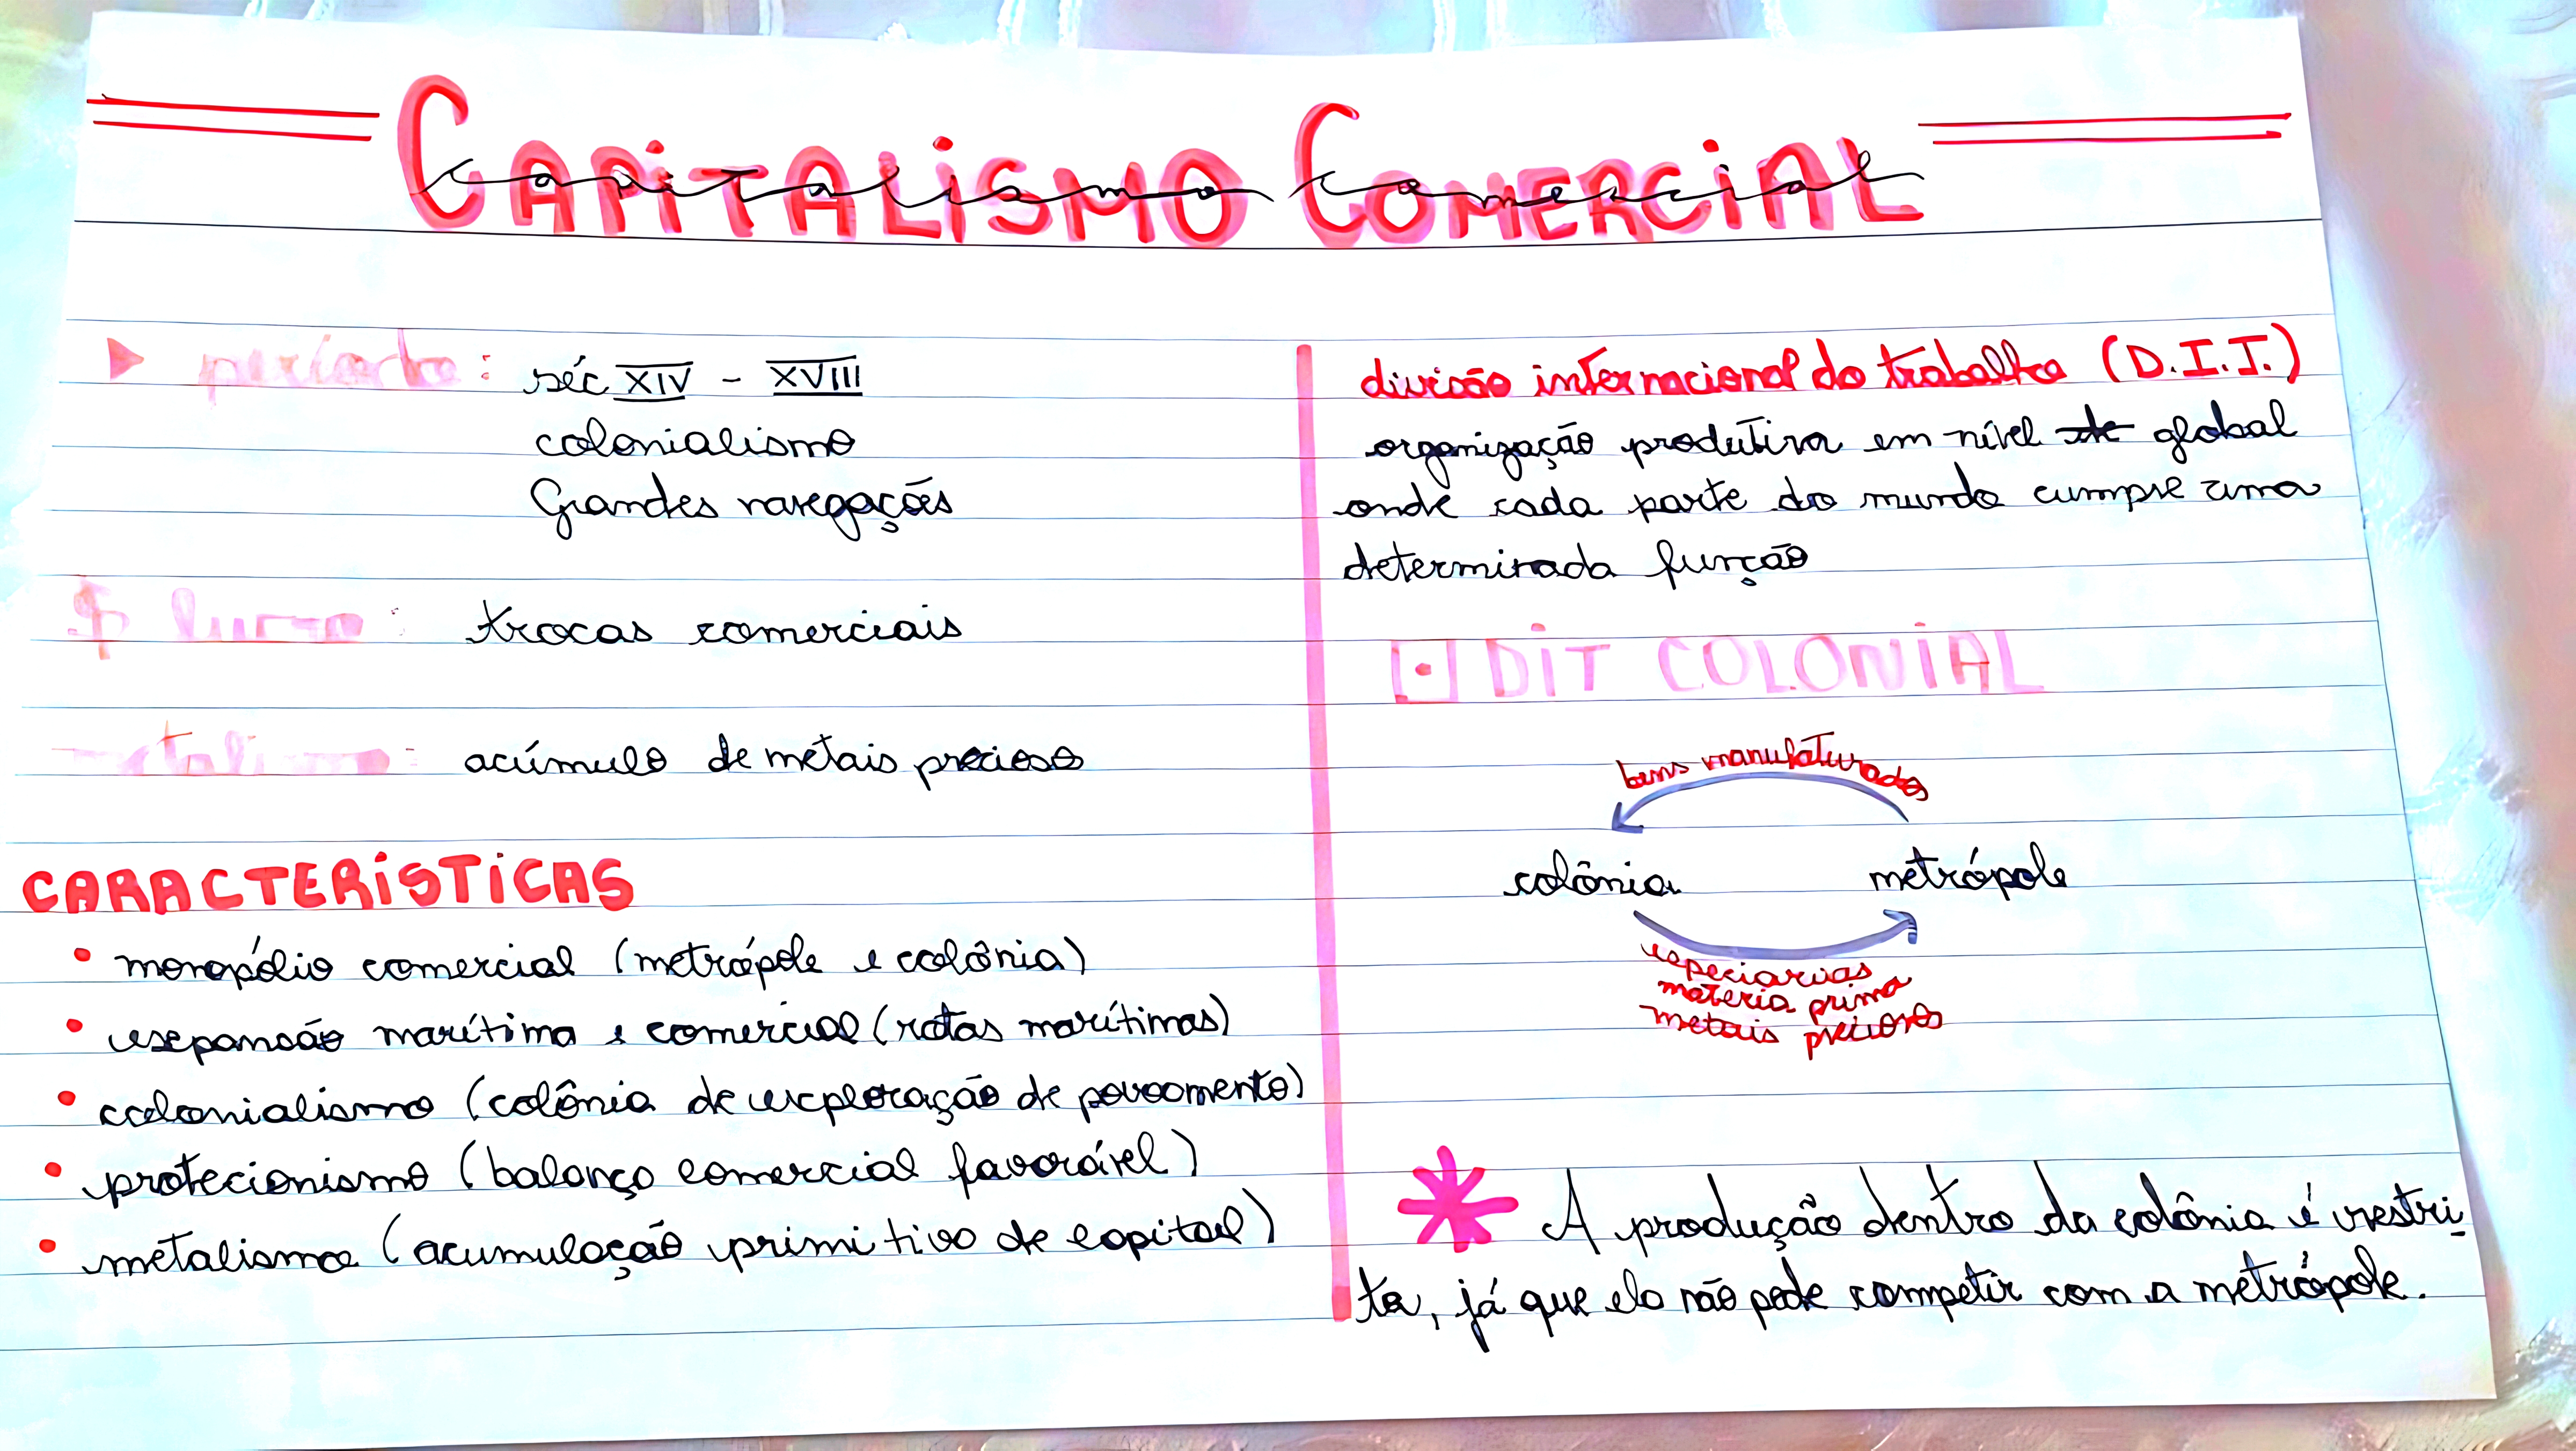 CAPITALISMO COMERCIAL
Capitalismo Comercial
período: séc XIV - XVIII
colonialismo
Grandes navegações
$ lucro: trocas comerciais
metalismo: acúmulo de metais precioso
CARACTERÍSTICAS
• monopólio comercial (metrópole e colônia)
• expansão marítima e comercial (rotas marítimas)
• colonialismo (colônia de exploração de povoamento)
• protecionismo (balanço comercial favorável)
• metalismo (acumulação primitiva de capital)
divisão internacional do trabalho (D.I.T.)
organização produtiva em nível de global
onde cada parte do mundo cumpre uma
determinada função
DIT COLONIAL
bens manufaturados
colônia metrópole
especiarias
materia prima
metais preciosos
* A produção dentro da colônia é restri-
ta, já que ela não pode competir com a metrópole.